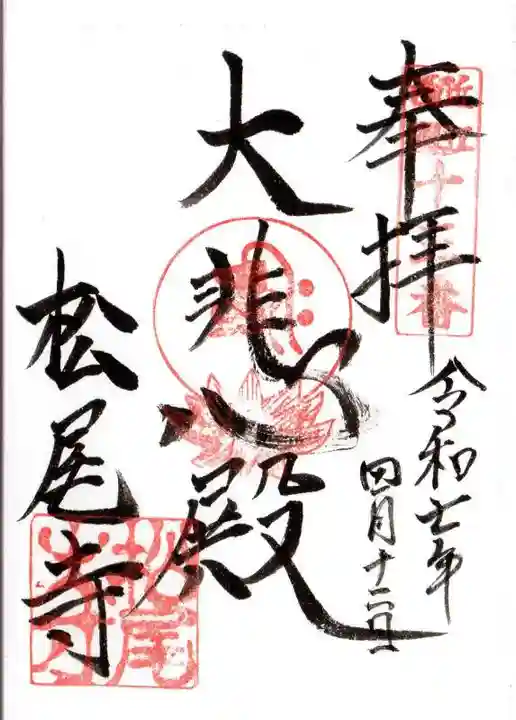 奉拝
令和七年
四月十二日
大悲殿
松尾寺
松尾寺